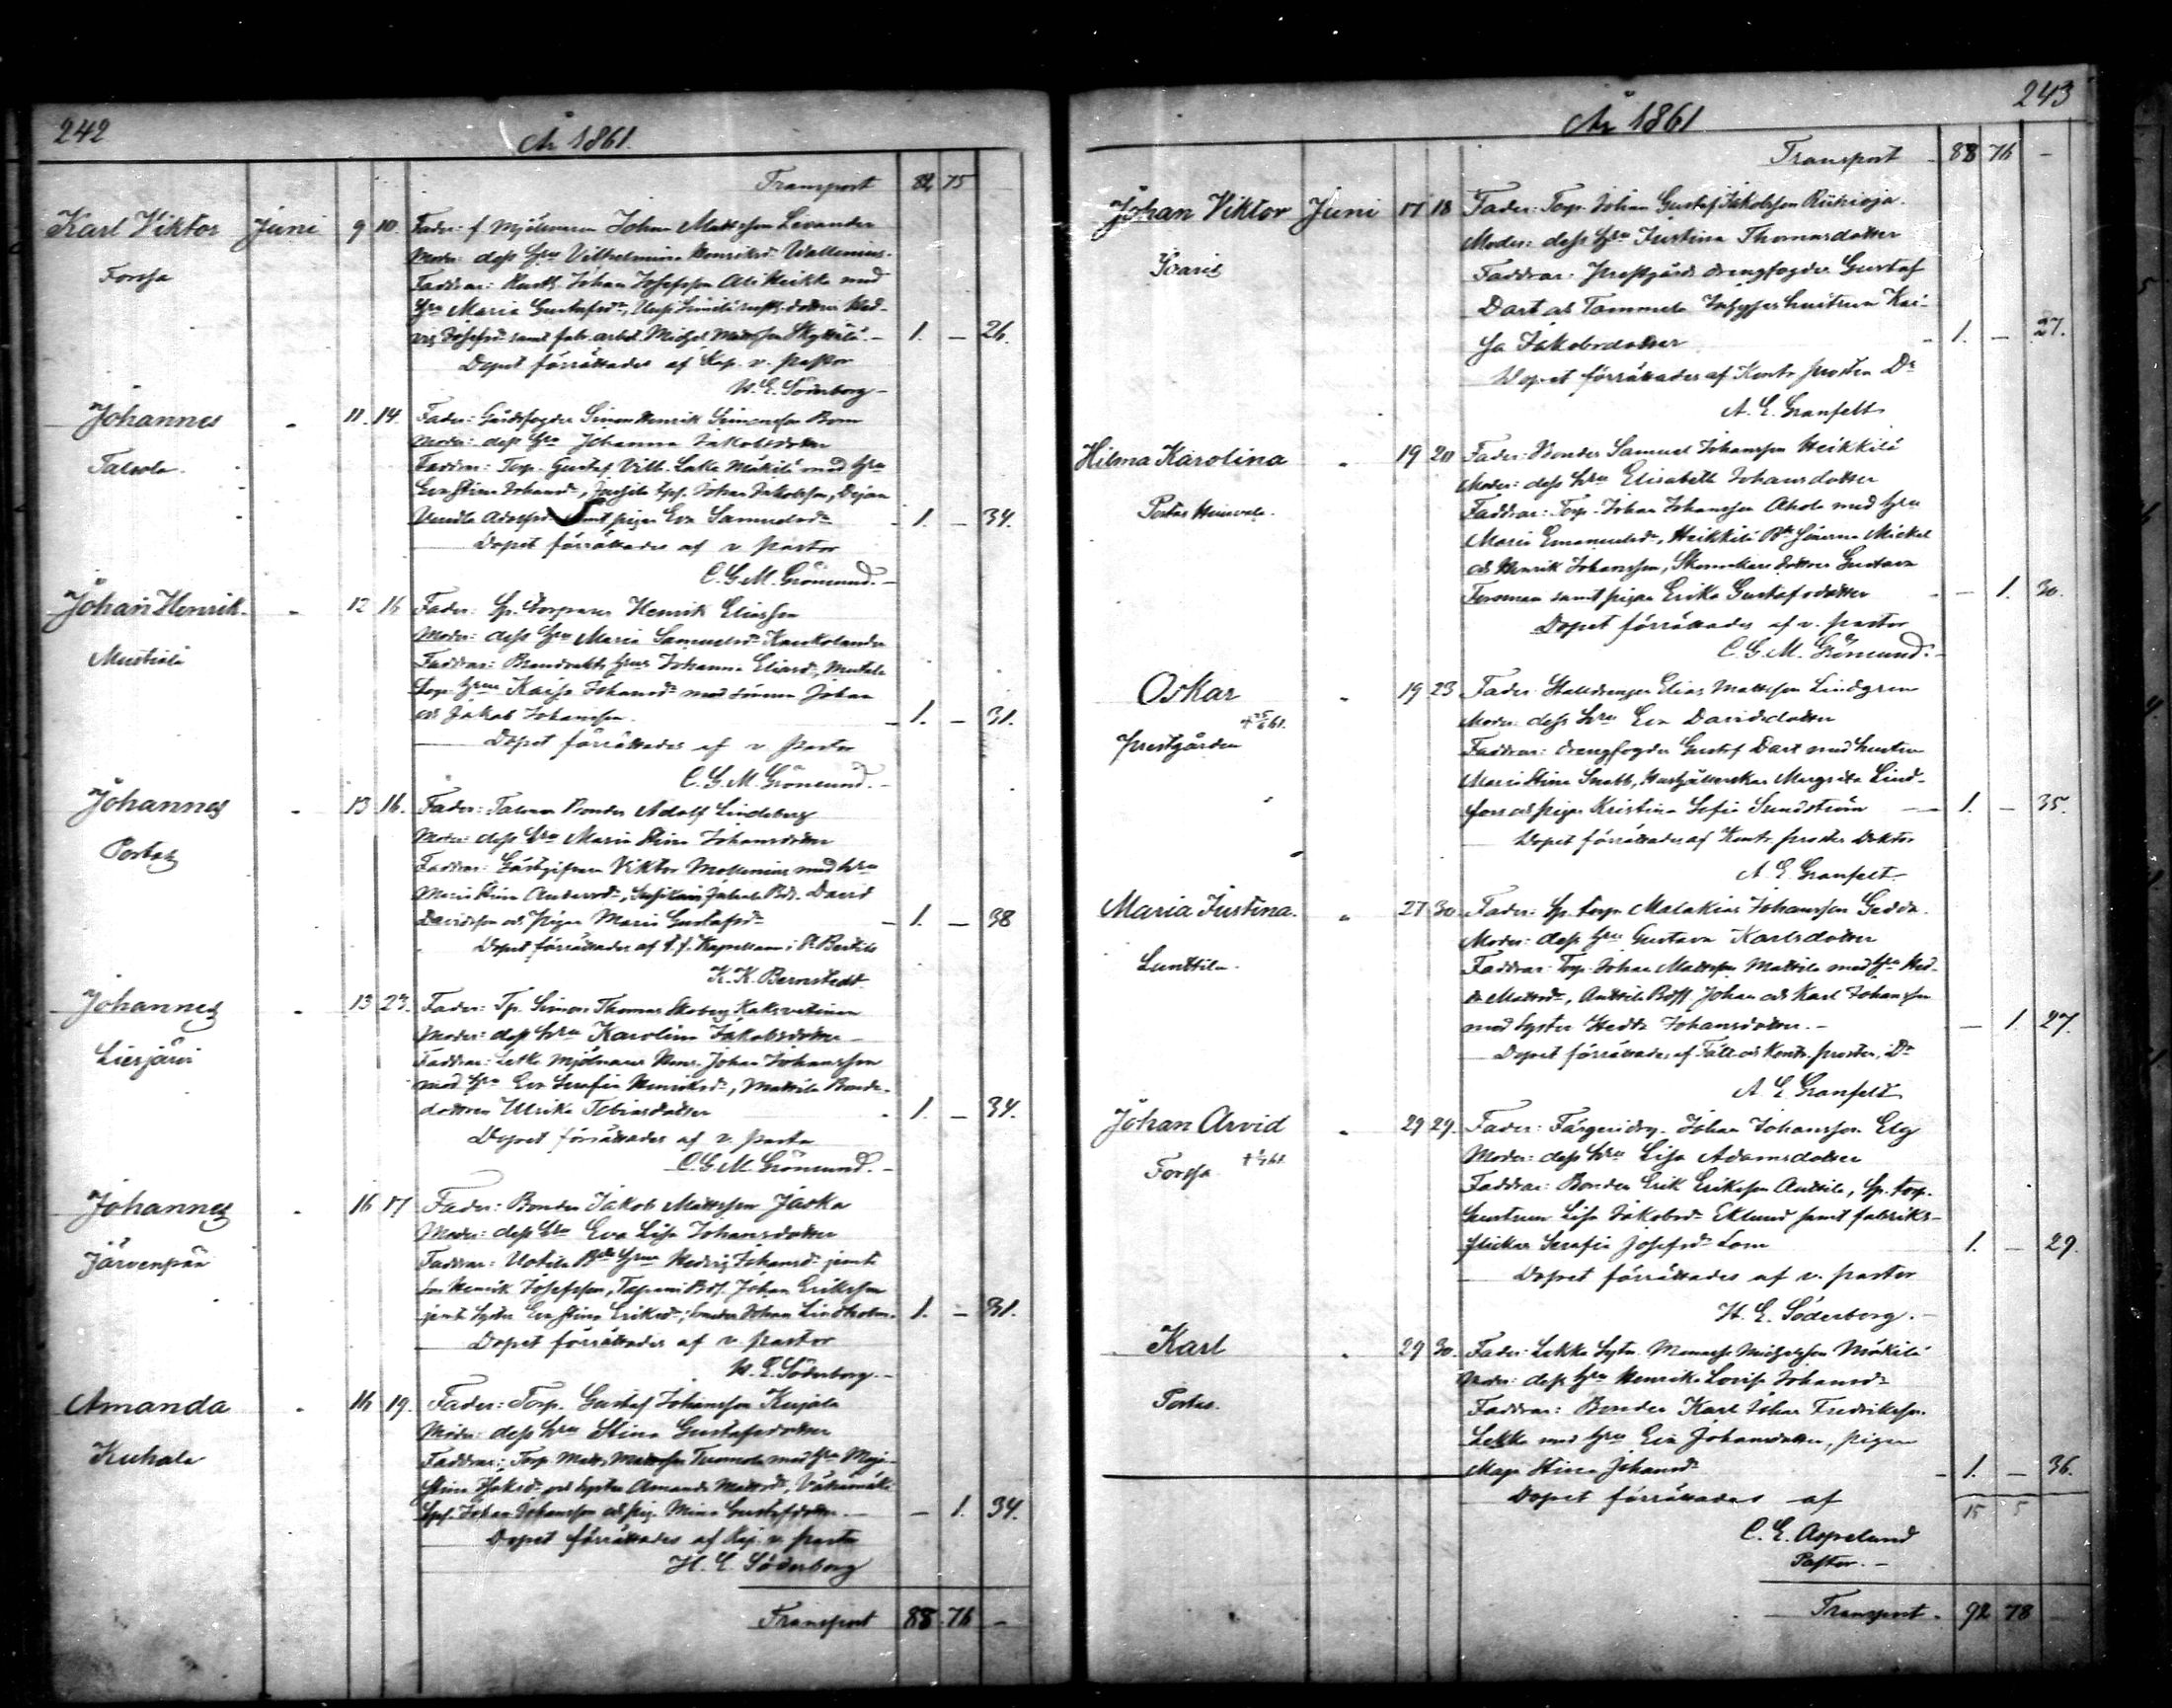 242
År 1861.
Transport 82 75
Karl Viktor Juni 9 10. Fader: f. Mjölnaren Johan Mattsson Levander
Forssa
Moder: dess Hru Vilhelmina Henriksdr Wallenius.
Faddrar: Rusth. Johan Josefsson Ali Heikkilä med
Hru Maria Gustafsdr, dotter Hed-
vig Josefsdr samt fab. arbet. Michel Mattsson - 1. - 26.
Dopet förrättades af Kap. v. pastor
H. E. Söderborg -
Johannes " 11. 14. Fader: Gårdsfogden Simon Henrik Simonsson Bom
Moder: dess Hru Johanna Jakobsdotter
Talsola.
Faddrar: Torp. Gustaf Vilh. Lakka Mäkilä med Hru
Eva Stina Johansdr, Johan Jakobsson, Pigan
Adolfsdr samt pigan Eva Samuelsdr - 1. - 34.
Dopet förrättades af v. pastor
C. G. M. Grönmund. -
Johan Henrik. " 12 16 Fader: Sp. torparen Henrik Eliasson
Moder: dess Hru Maria Samuelsdr Kaukolander
Mustiala
Faddrar: Hru Johanna Eliasdr, Mustiala
Torp. Hru Kaisa Johansdr med sonen Johan
och Jakob Johansson. - 1. - 31.
Dopet förrättades af v. pastor
C. G. M. Grönmund. -
Johannes " 13 16. Fader: Bonden Adolf Lindeberg
Moder: dess Hru Maria Stina Johansdotter
Portas
Faddrar: Gästgifvaren Viktor Mollenius med Hru
Maria Stina Andersdr, David
Davidsson och Pigan Maria Gustafsdr - 1. - 38
Dopet förrättades af t. f. Kapellanen i St Bertils
K. K. Bernstedt.
Johannes " 13 23. Fader: Tp. Simon Thomas Skoberg Kaksvetinen
Moder: dess Hru Karolina Jakobsdotter -
Liesjärvi
Faddrar: Letku Mjölnaren Henr. Johan Johansson
med Hru Eva Serafia Henriksdr, Mattila Bonde-
dottren Ulrika Tobiasdotter - 1. - 34.
Dopet förrättades af v. pastor
C. G. M. Grönmund. -
Johannes " 16 17 Fader: Bonden Jakob Mattsson Jaska
Moder: dess Hru Eva Lisa Johansdotter
Järvenpää
Faddrar: Uotila Bde Hru Hedvig Johansdr jemte
son Henrik Josefsson, Tapani Bds. Johan Eriksson
jemte Syster Eva Stina Eriksdr, Smeden Johan Lindholm. 1. - 31.
Dopet förrättades af v. pastor
H. E. Söderborg. -
Amanda " 16 19. Fader: Torp. Gustaf Johansson Kujala
Moder: dess Hru Stina Gustafsdotter
Kuhala
Faddrar: Torp. Matts Mattsson Tuomola med Hru Maja
Stina Isaksdr och Syster Amanda Mattsdr,
Johan Johansson och pig. Mina Gustafsdotter. - - 1. 34.
Dopet förrättades af Kap. v. pastor
H. E. Söderborg
Transport 88 76 -
243
År 1861
Transport - 88 76 -
Johan Viktor Juni 17 18 Fader: Torp. Johan Gustaf Jakobsson Riihioja.
Moder: dess Hru Justina Thomasdotter
Saaris
Faddrar: Prestgårds drengfogden Gustaf
Dart och Tammela Inhyses hustrun Kai-
sa Jakobsdotter - 1. - 27.
Dopet förrättades af Kontr. prosten Dr
A. E. Granfelt
Hilma Karolina " 19 20 Fader: Bonden Samuel Johansson Heikkilä
Moder: dess Hru Elisabeth Johansdotter
Portas
Faddrar: Torp. Johan Johansson Ahola med Hru
Maria Emanuelsdr, Heikkilä Bde sönerna Mickel
och Henrik Johansson, Skomakare dottren Gustava
Forsman samt pigan Erika Gustafsdotter - - 1. 30.
Dopet förrättades af v. pastor
C. G. M. Grönmund. -
Oskar " 19 23 Fader: Stalldrengen Elias Mattsson Lindgren
Moder: dess Hru Eva Davidsdotter
prestgården
Faddrar: drengfogden Gustaf Dart med hustrun
Maria Stina Snabb, Hushållerskan Margreta Lind-
fors och pigan Kristina Sofia Sundström - 1. - 35.
Dopet förrättades af Kontr. prosten Doktor
A. E. Granfelt.
Maria Justina. " 27 30. Fader: Sp. torp. Malakias Johansson Gedda.
Moder: dess Hru Gustava Karlsdotter
Lunttila.
Faddrar: Torp. Johan Mattsson Mattila med Hru Hed-
da Mattsdr, Anttila Bdss. Johan och Karl Johansson
med Syster Hedda Johansdotter. - - 1. 27.
Dopet förrättades af Fält och Kontr. prosten, Dr
A. E. Granfelt
Johan Arvid " 29 29. Fader: Färgeridrg. Johan Johansson Elg
Moder: dess Hru Lisa Adamsdotter
Forssa
Faddrar: Bonden Erik Eriksson Anttila, Sp. torp.
hustrun Lisa Jakobsdr Eklund samt fabriks-
flickan Serafia Josefsdr Lom 1. - 29.
Dopet förrättades af v. pastor
H. E. Söderborg. -
Karl " 29 30. Fader: Lekka Sytn. Manasse Michelsson Mäkilä
Moder: dess Hru Henrika Lovisa Johansdr
Portas.
Faddrar: Bonden Karl Johan Fredriksson
Lekka med Hru Eva Johansdotter, pigan
Maja Stina Johansdr - 1. - 36.
Dopet förrättades af 15 5
C. E. Aspelund
Pastor. -
Transport - 92 78